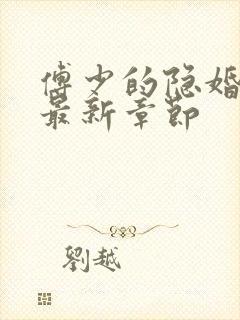 傅少的隐婚
最新章節
劉越